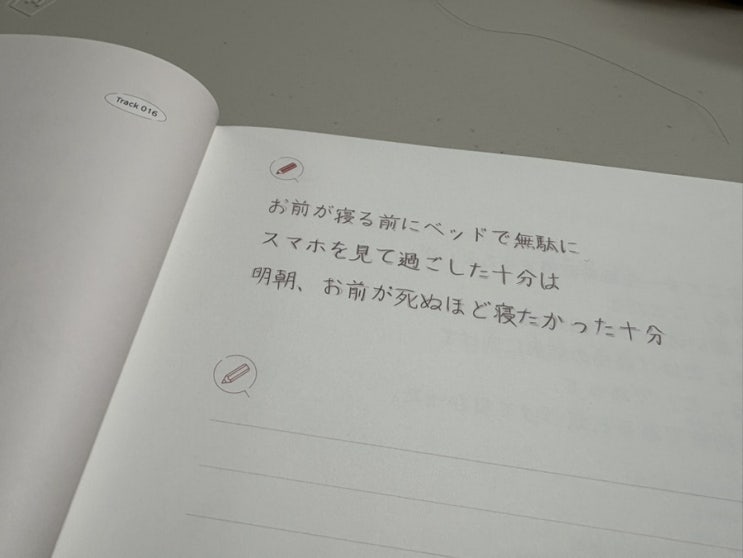 Track 016
お前が寝る前にベッドで無駄に
スマホを見て過ごした十分は
明朝、お前が死ぬほど寝たかった十分